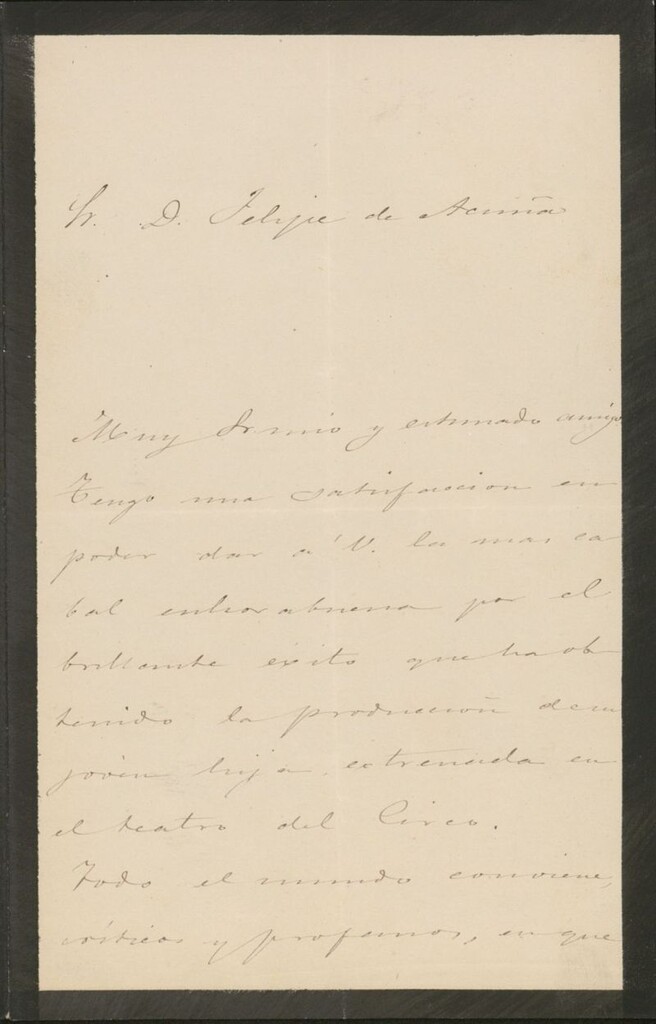 Sr. D. Felipe de Acuña
Muy Sr mio y estimado amigo,
Tengo una satisfaccion en
poder dar á V. la mas ca
bal enhorabuena por el
brillante exito que ha ob
tenido la producción de su
jóven hija extrenada en
el teatro del Circo.
Todo el mundo conviene,
críticos y profanos, en que